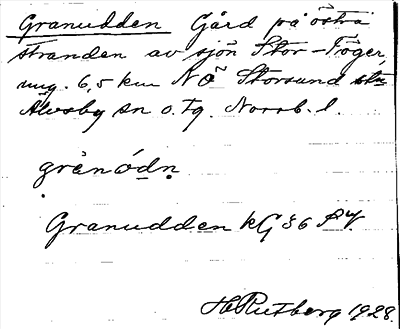 Granudden Gård på östra
stranden av sjön Stor-Töger,
ung. 6,5 km NÖ Storsund stn
Älvsby sn o. tg. Norrb. l.
grànódn
Granudden kG 36
H Rutberg 1928.